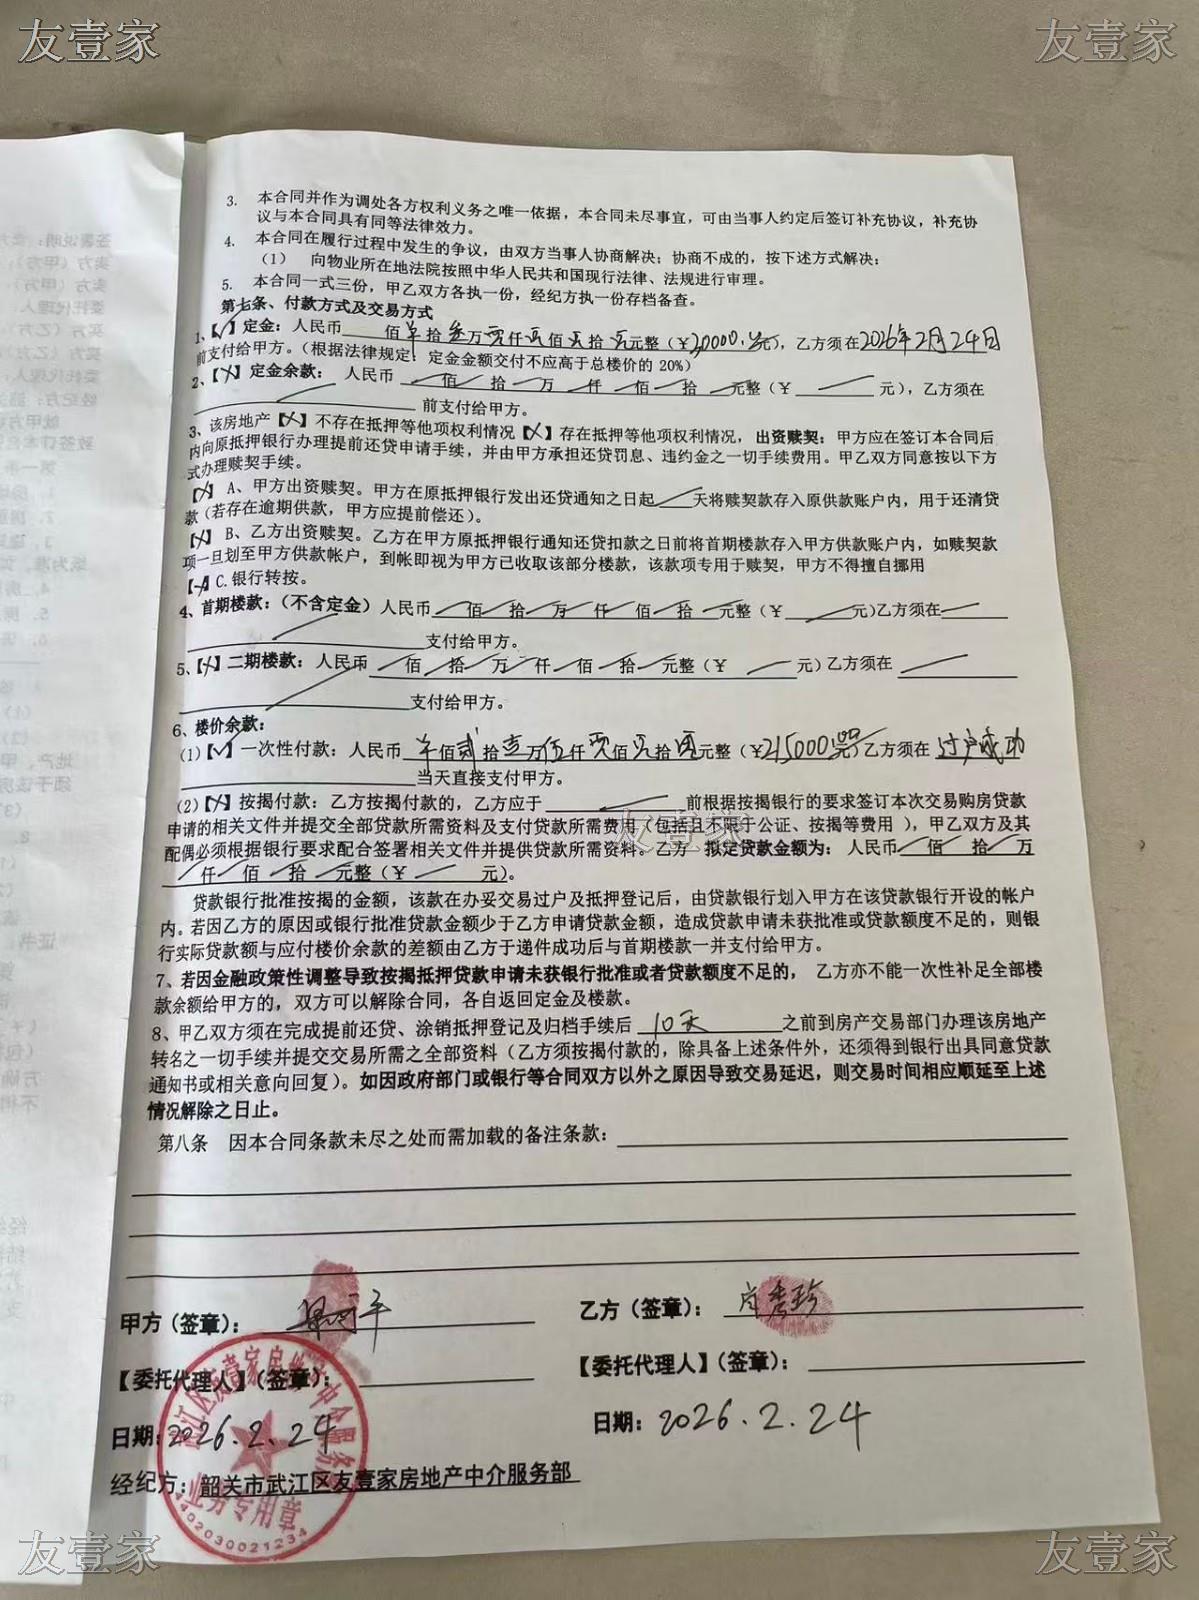 友壹家
友壹家
3. 本合同并作为调处各方权利义务之唯一依据，本合同未尽事宜，可由当事人约定后签订补充协议，补充协
议与本合同具有同等法律效力。
4. 本合同在履行过程中发生的争议，由双方当事人协商解决；协商不成的，按下述方式解决：
（1） 向物业所在地法院按照中华人民共和国现行法律、法规进行审理。
5. 本合同一式三份，甲乙双方各执一份，经纪方执一份存档备查。
第七条、付款方式及交易方式
1、【✓】定金：人民币 佰 拾 万 仟 佰 拾 元整（￥ 元），乙方须在2026年2月24日
前支付给甲方。（根据法律规定：定金金额交付不应高于总楼价的 20%）
2、【╳】定金余款： 人民币 佰 拾 万 仟 佰 拾 元整（￥ 元），乙方须在
前支付给甲方。
3、该房地产【╳】不存在抵押等他项权利情况【╳】存在抵押等他项权利情况，出资赎契：甲方应在签订本合同后
内向原抵押银行办理提前还贷申请手续，并由甲方承担还贷罚息、违约金之一切手续费用。甲乙双方同意按以下方
式办理赎契手续。
【╳】 A、甲方出资赎契。甲方在原抵押银行发出还贷通知之日起 天将赎契款存入原供款账户内，用于还清贷
款（若存在逾期供款，甲方应提前偿还）。
【╳】 B、乙方出资赎契。乙方在甲方原抵押银行通知还贷扣款之日前将首期楼款存入甲方供款账户内，如赎契款
项一旦划至甲方供款帐户，到帐即视为甲方已收取该部分楼款，该款项专用于赎契，甲方不得擅自挪用
【╳】C.银行转按。
4、首期楼款：（不含定金）人民币 佰 拾 万 仟 佰 拾 元整（￥ 元)乙方须在
支付给甲方。
5、【╳】二期楼款：人民币 佰 拾 万 仟 佰 拾 元整（￥ 元）乙方须在
支付给甲方。
6、楼价余款：
（1）【✓】一次性付款：人民币 佰贰拾壹万伍仟 佰 拾 元整（￥215000 乙方须在 过户成功
当天直接支付甲方。
（2）【╳】按揭付款：乙方按揭付款的，乙方应于 前根据按揭银行的要求签订本次交易购房贷款
申请的相关文件并提交全部贷款所需资料及支付贷款所需费用（包括且不限于公证、按揭等费用 ），甲乙双方及其
配偶必须根据银行要求配合签署相关文件并提供贷款所需资料。乙方 拟定贷款金额为： 人民币 佰 拾 万
仟 佰 拾 元整（￥ 元）。
友壹家
贷款银行批准按揭的金额，该款在办妥交易过户及抵押登记后，由贷款银行划入甲方在该贷款银行开设的帐户
内。若因乙方的原因或银行批准贷款金额少于乙方申请贷款金额，造成贷款申请未获批准或贷款额度不足的，则银
行实际贷款额与应付楼价余款的差额由乙方于递件成功后与首期楼款一并支付给甲方。
7、若因金融政策性调整导致按揭抵押贷款申请未获银行批准或者贷款额度不足的， 乙方亦不能一次性补足全部楼
款余额给甲方的，双方可以解除合同，各自返回定金及楼款。
8、甲乙双方须在完成提前还贷、涂销抵押登记及归档手续后 10天 之前到房产交易部门办理该房地产
转名之一切手续并提交交易所需之全部资料（乙方须按揭付款的，除具备上述条件外，还须得到银行出具同意贷款
通知书或相关意向回复）。如因政府部门或银行等合同双方以外之原因导致交易延迟，则交易时间相应顺延至上述
情况解除之日止。
第八条 因本合同条款未尽之处而需加载的备注条款：
甲方（签章）：
乙方（签章）： 肖秀珍
【委托代理人】（签章）：
【委托代理人】（签章）：
日期：2026.2.24
日期：2026.2.24
经纪方：韶关市武江区友壹家房地产中介服务部
业务专用章
4402030021234
友壹家
友壹家